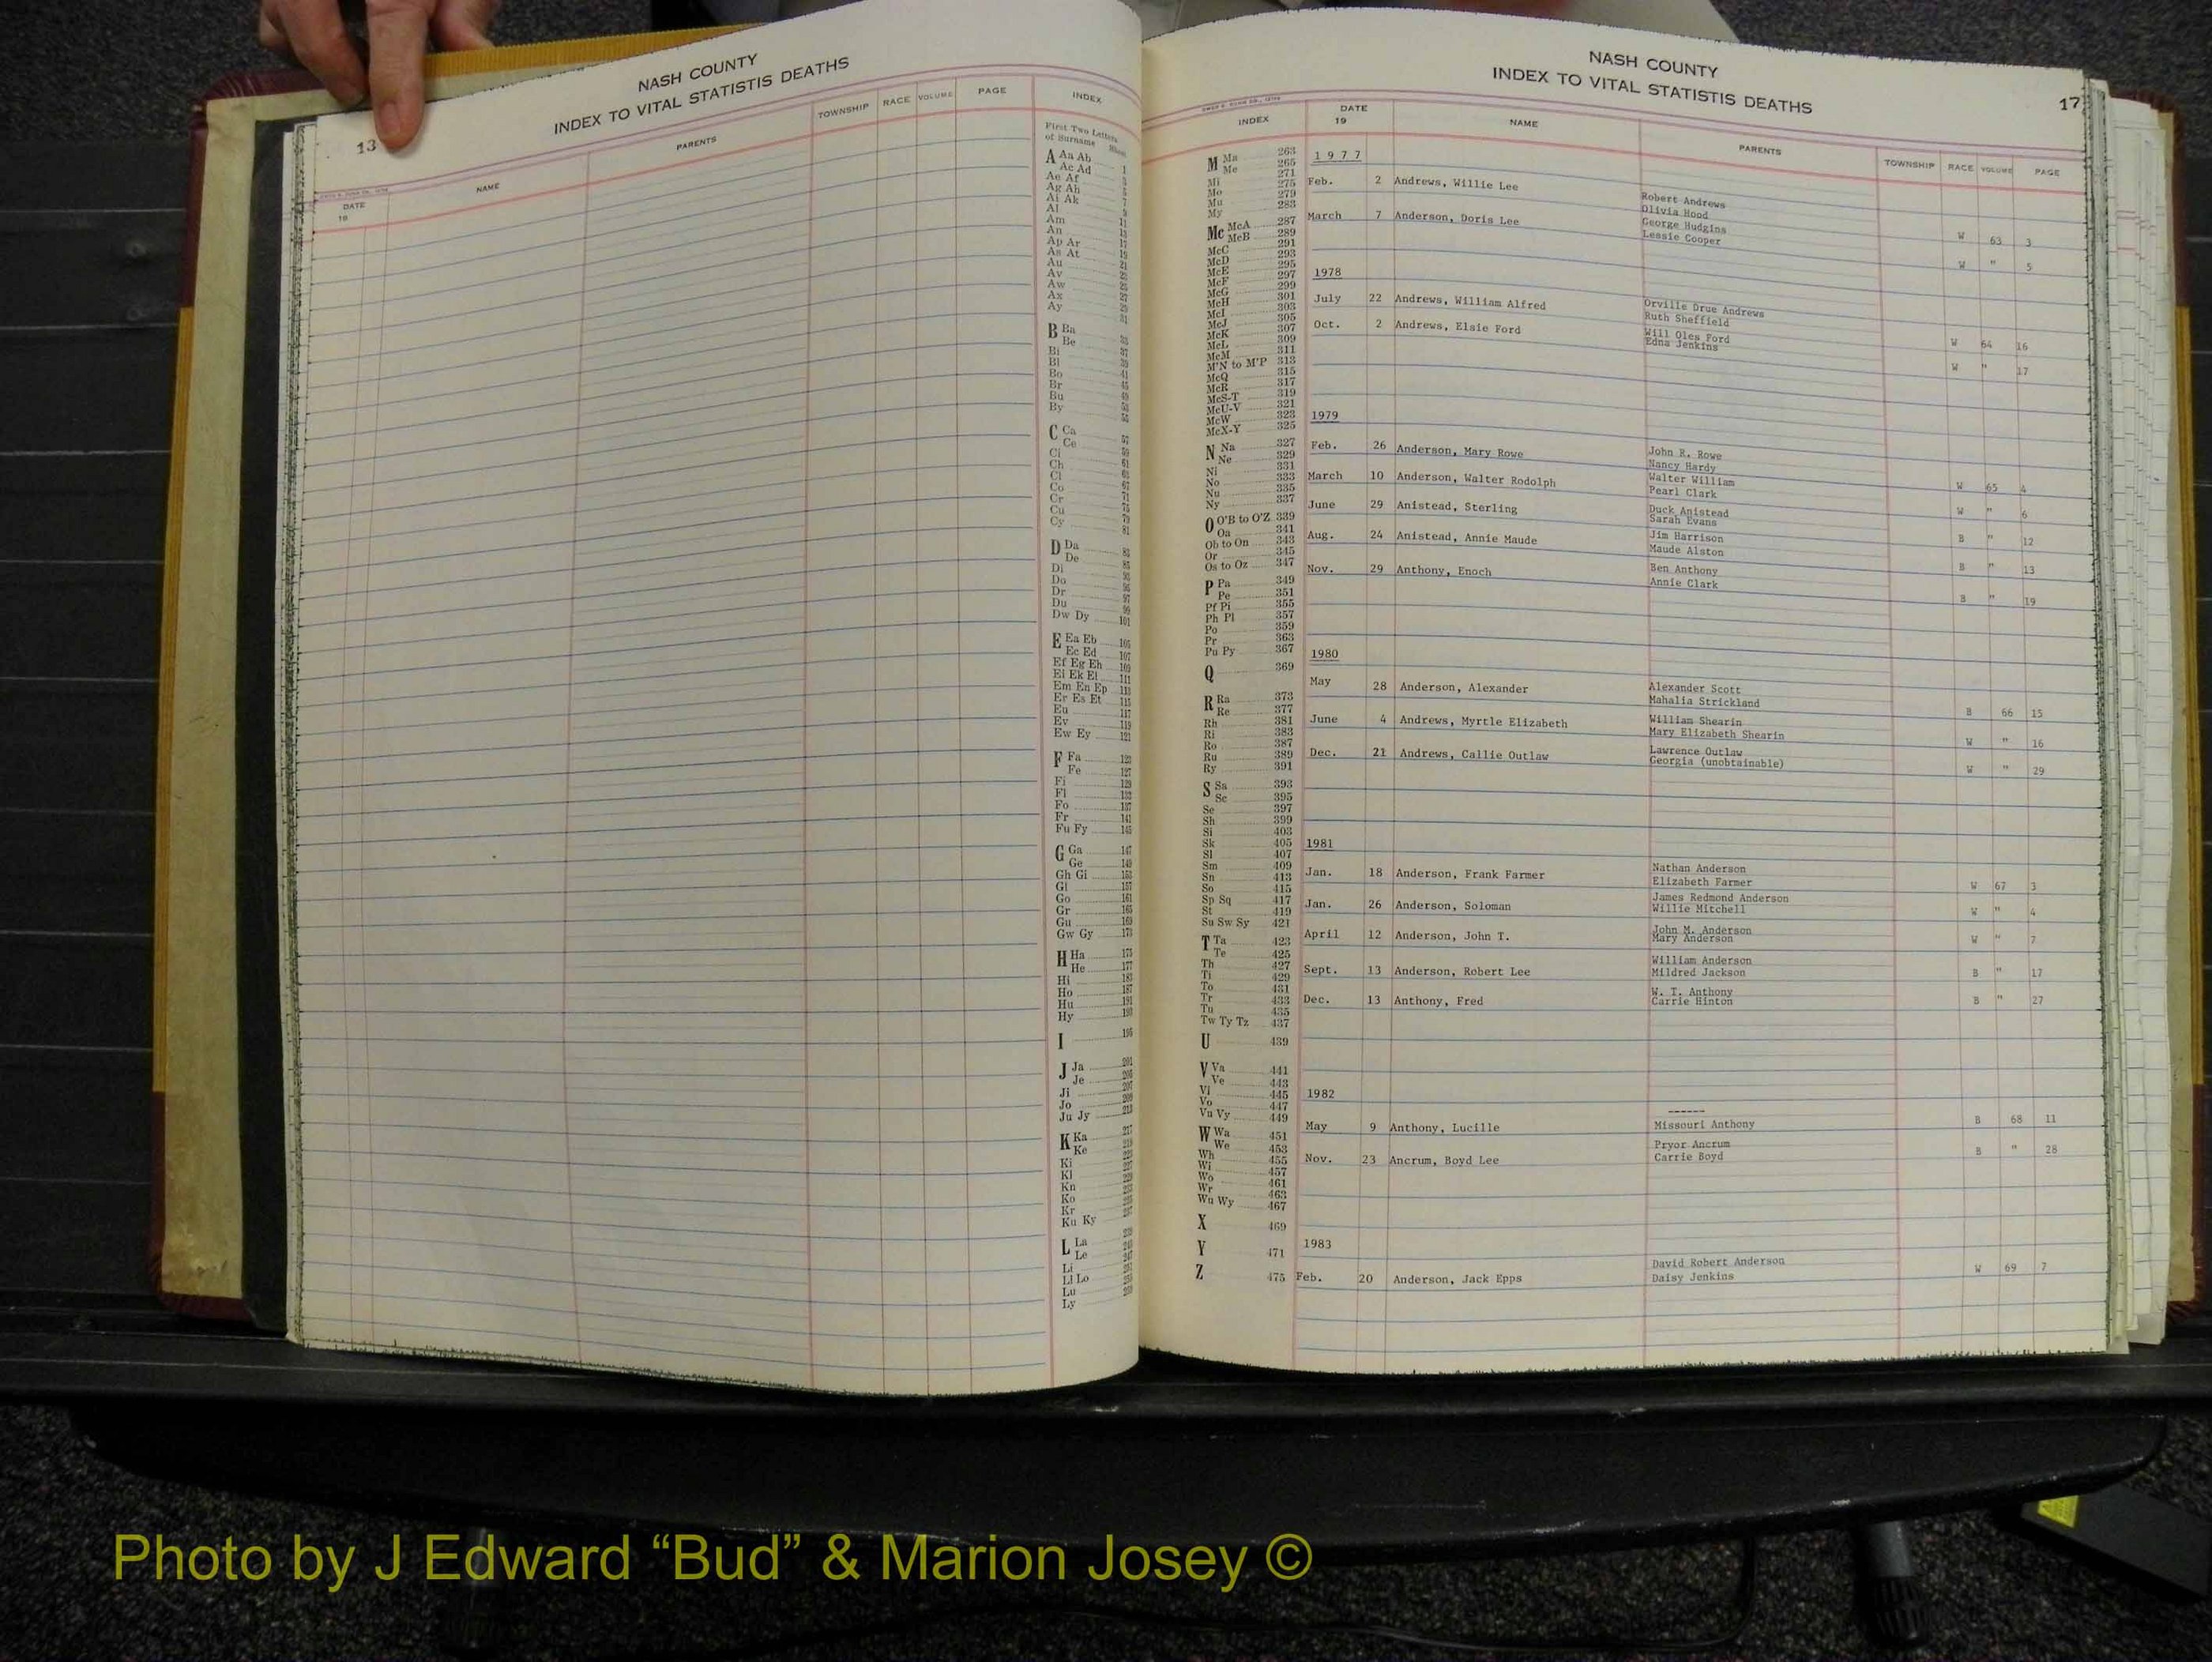 NASH COUNTY
INDEX TO VITAL STATISTIS DEATHS
13
DATE
19
NAME
PARENTS
TOWNSHIP RACE VOLUME PAGE
INDEX
First Two Letters
of Surname
A Aa Ab 1
Ac Ad 3
Ae Af 5
Ag Ah 7
Ai Ak 9
Al 11
Am 13
An
Ap Ar
As At
Au
Av
Aw
Ax
Ay
B Ba
Be
Bi
Bl
Bo
Br
Bu
By
C Ca
Ce
Ci
Ch
Cl
Co
Cr
Cu
Cy
D Da
De
Di
Do
Dr
Du
Dw Dy 101
E Ea Eb 105
Ec Ed 107
Ef Eg Eh 109
Ei Ek El 111
Em En Ep 113
Er Es Et 115
Eu 117
Ev 119
Ew Ey 121
F Fa 123
Fe 127
Fi 129
Fl 133
Fo 137
Fr 141
Fu Fy 145
G Ga 147
Ge 149
Gh Gi 153
Gl 157
Go 161
Gr 165
Gu 169
Gw Gy 173
H Ha 175
He 177
Hi 183
Ho 187
Hu 191
Hy 193
I 195
J Ja 201
Je
Ji
Jo
Ju Jy
K Ka
Ke
Ki
Kl
Kn
Ko
Kr
Ku Ky
L La
Le
Li
Ll Lo
Lu
Ly
NASH COUNTY
INDEX TO VITAL STATISTIS DEATHS
17
INDEX
DATE
19
NAME
PARENTS
TOWNSHIP RACE VOLUME PAGE
M Ma 263
Me 265
Mi 271
Mo 275
Mu 279
My 283
Mc McA 287
McB 289
McC 291
McD 293
McE 295
McF 297
McG 299
McH 301
McI 303
McJ 305
McK 307
McL 309
McM 311
M'N to M'P 313
McQ 315
McR 317
McS-T 319
McU-V 321
McW 323
McX-Y 325
N Na 327
Ne 329
Ni 331
No 333
Nu 335
Ny 337
O O'B to O'Z 339
Oa 341
Ob to On 343
Or 345
Os to Oz 347
P Pa 349
Pe 351
Pf Pi 355
Ph Pl 357
Po 359
Pr 363
Pu Py 367
Q 369
R Ra 373
Re 377
Rh 381
Ri 383
Ro 387
Ru 389
Ry 391
S Sa 393
Sc 395
Se 397
Sh 399
Si 403
Sk 405
Sl 407
Sm 409
Sn 413
So 415
Sp Sq 417
St 419
Su Sw Sy 421
T Ta 423
Te 425
Th 427
Ti 429
To 431
Tr 433
Tu 435
Tw Ty Tz 437
U 439
V Va 441
Ve 443
Vi 445
Vo 447
Vu Vy 449
W Wa 451
We 453
Wh 455
Wi 457
Wo 461
Wr 463
Wu Wy 467
X 469
Y 471
Z 475
1977
Feb. 2 Andrews, Willie Lee Robert Andrews
Olivia Hood W 63 3
March 7 Anderson, Doris Lee George Hudgins
Lessie Cooper W " 5
1978
July 22 Andrews, William Alfred Orville Drue Andrews
Ruth Sheffield W 64 16
Oct. 2 Andrews, Elsie Ford Will Oles Ford
Edna Jenkins W " 17
1979
Feb. 26 Anderson, Mary Rowe John R. Rowe
Nancy Hardy W 65 4
March 10 Anderson, Walter Rodolph Walter William
Pearl Clark W " 6
June 29 Anistead, Sterling Duck Anistead
Sarah Evans B " 12
Aug. 24 Anistead, Annie Maude Jim Harrison
Maude Alston B " 13
Nov. 29 Anthony, Enoch Ben Anthony
Annie Clark B " 19
1980
May 28 Anderson, Alexander Alexander Scott
Mahalia Strickland B 66 15
June 4 Andrews, Myrtle Elizabeth William Shearin
Mary Elizabeth Shearin W " 16
Dec. 21 Andrews, Callie Outlaw Lawrence Outlaw
Georgia (unobtainable) W " 29
1981
Jan. 18 Anderson, Frank Farmer Nathan Anderson
Elizabeth Farmer W 67 3
Jan. 26 Anderson, Soloman James Redmond Anderson
Willie Mitchell W " 4
April 12 Anderson, John T. John M. Anderson
Mary Anderson W " 7
Sept. 13 Anderson, Robert Lee William Anderson
Mildred Jackson B " 17
Dec. 13 Anthony, Fred W. T. Anthony
Carrie Hinton B " 27
1982
May 9 Anthony, Lucille ------
Missouri Anthony B 68 11
Nov. 23 Ancrum, Boyd Lee Pryor Ancrum
Carrie Boyd B " 28
1983
Feb. 20 Anderson, Jack Epps David Robert Anderson
Daisy Jenkins W 69 7
Photo by J Edward “Bud” & Marion Josey ©